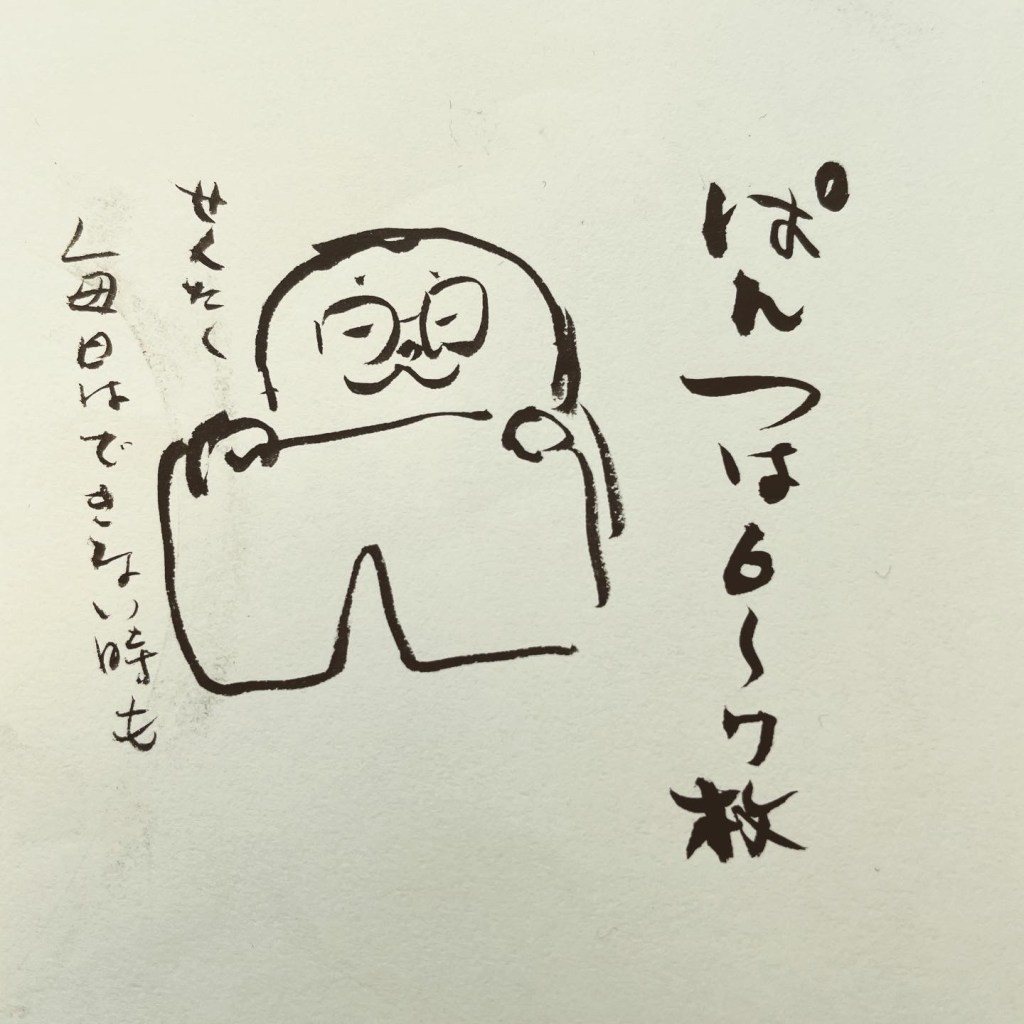 ぱんつは6〜7枚
せんたく
毎日はできない時も